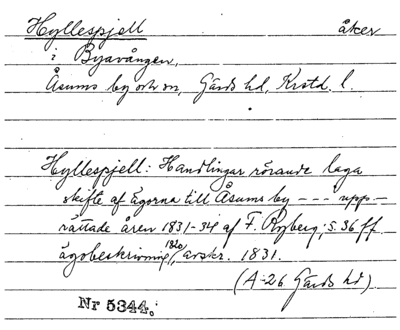 Hyllespjell åker
i Byavången,
Åsums by och sn, Gärds hd, Krstd. l.
Hyllespjell: Handlingar rörande laga
skifte af ägorna till Åsums by --- upp-
rättade åren 1831-34 af F. Ryberg; s. 36 ff.
ägobeskrivning 1820, avskr. 1831.
(A=26 Gärds hd)
Nr 5344.